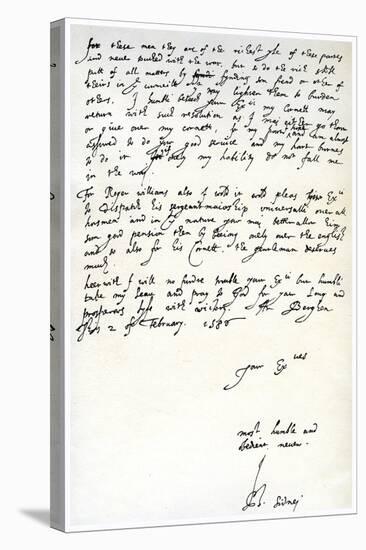 for these men they are of the richest of these partes
and never touched with the warr. but to do the rich
putt of all matter by fynding som frend or other of
theirs in to lighten them to burden
others. I besech your Ex my Cornett may
return with such resolution as I may either go thorow
or give over my cornett. In my power, and am always
assured to do yow good service and my hart burnes
to do it only my hability do not fall me
in the way.
For Roger williams also I wold it wold pleas your Ex
to dispatch his sergeant maiorship universalli over all
horsmen and in nature your may better allow him
som good pension then by being only over the english
and so also for his Cornett, the gentleman deserves
much
heerwith I will no furdre trouble your Ex but humbli
take my leav and prai to God for your long and
prosperous lyfe with victory. At Berghen
this 2 of February. 1586
Your Ex
most humble and
obedient nevew.
Ph. Sidnei